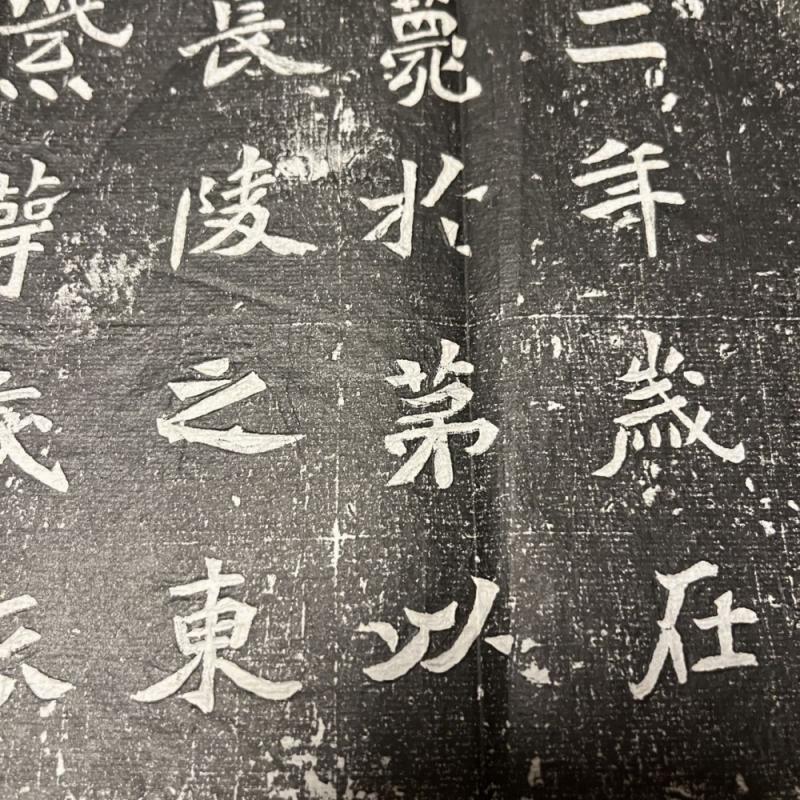 二年歲在
薨於第以
長陵之東